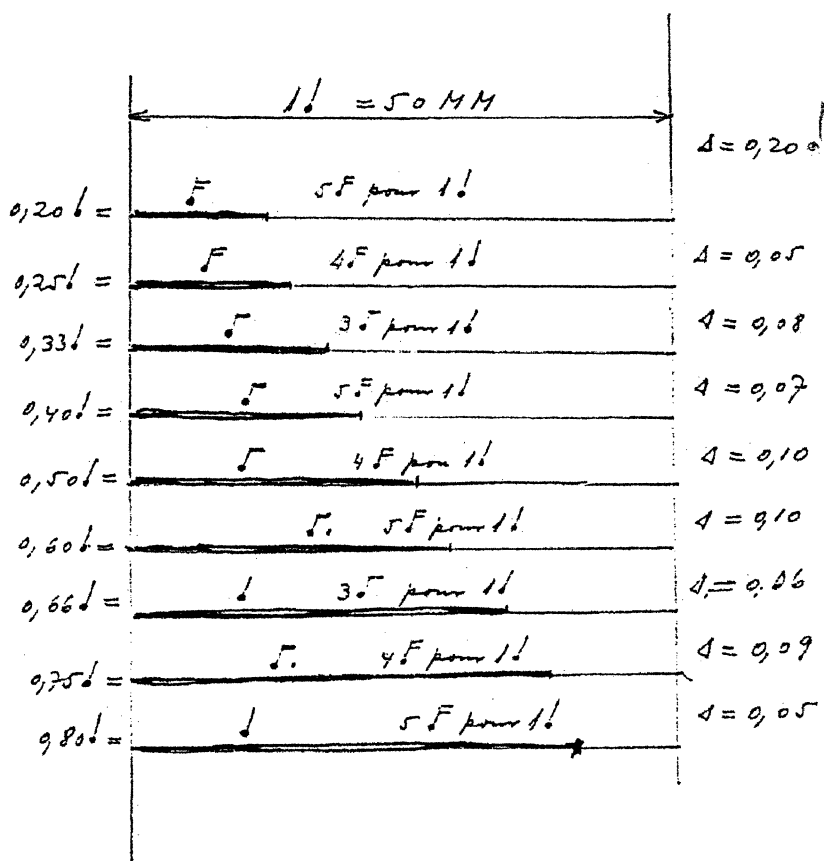 1♩ = 50 MM
Δ = 0,20 ♩
0,20♩ = 𝅘𝅥𝅯 5𝅘𝅥𝅯 pour 1♩
0,25♩ = 𝅘𝅥𝅯 4𝅘𝅥𝅯 pour 1♩ Δ = 0,05
0,33♩ = ♪ 3♪ pour 1♩ Δ = 0,08
0,40♩ = ♪ 5𝅘𝅥𝅯 pour 1♩ Δ = 0,07
0,50♩ = ♪ 4𝅘𝅥𝅯 pou 1♩ Δ = 0,10
0,60♩ = ♪. 5𝅘𝅥𝅯 pour 1♩ Δ = 0,10
0,66♩ = ♩ 3♪ pour 1♩ Δ = 0,06
0,75♩ = ♪. 4𝅘𝅥𝅯 pour 1♩ Δ = 0,09
0,80♩ = ♩ 5𝅘𝅥𝅯 pour 1♩ Δ = 0,05